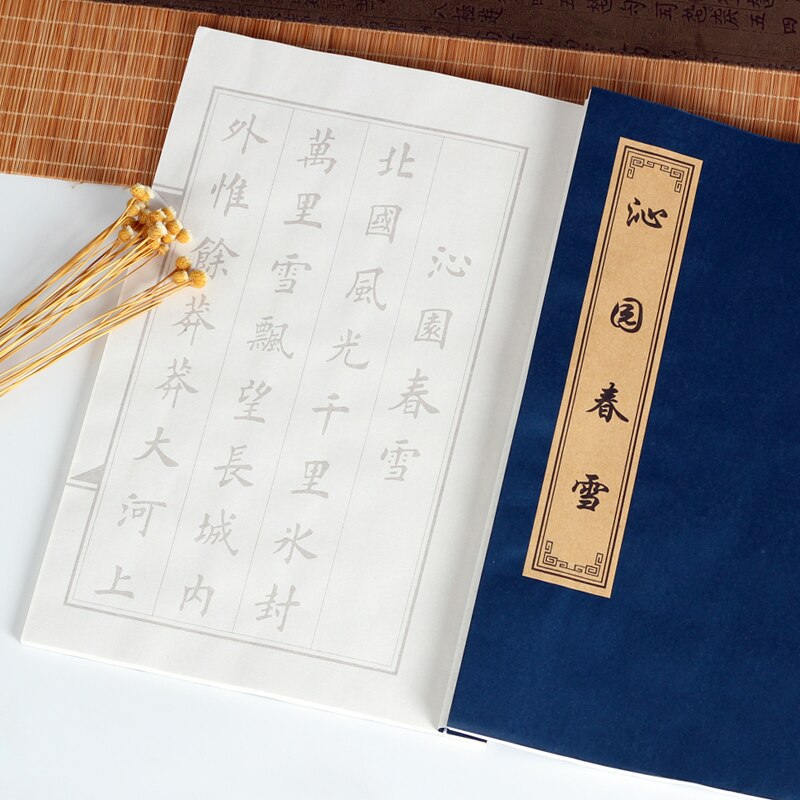 沁园春雪
沁園春雪
北國風光千里氷封
萬里雪飄望長城内
外惟餘莽莽大河上